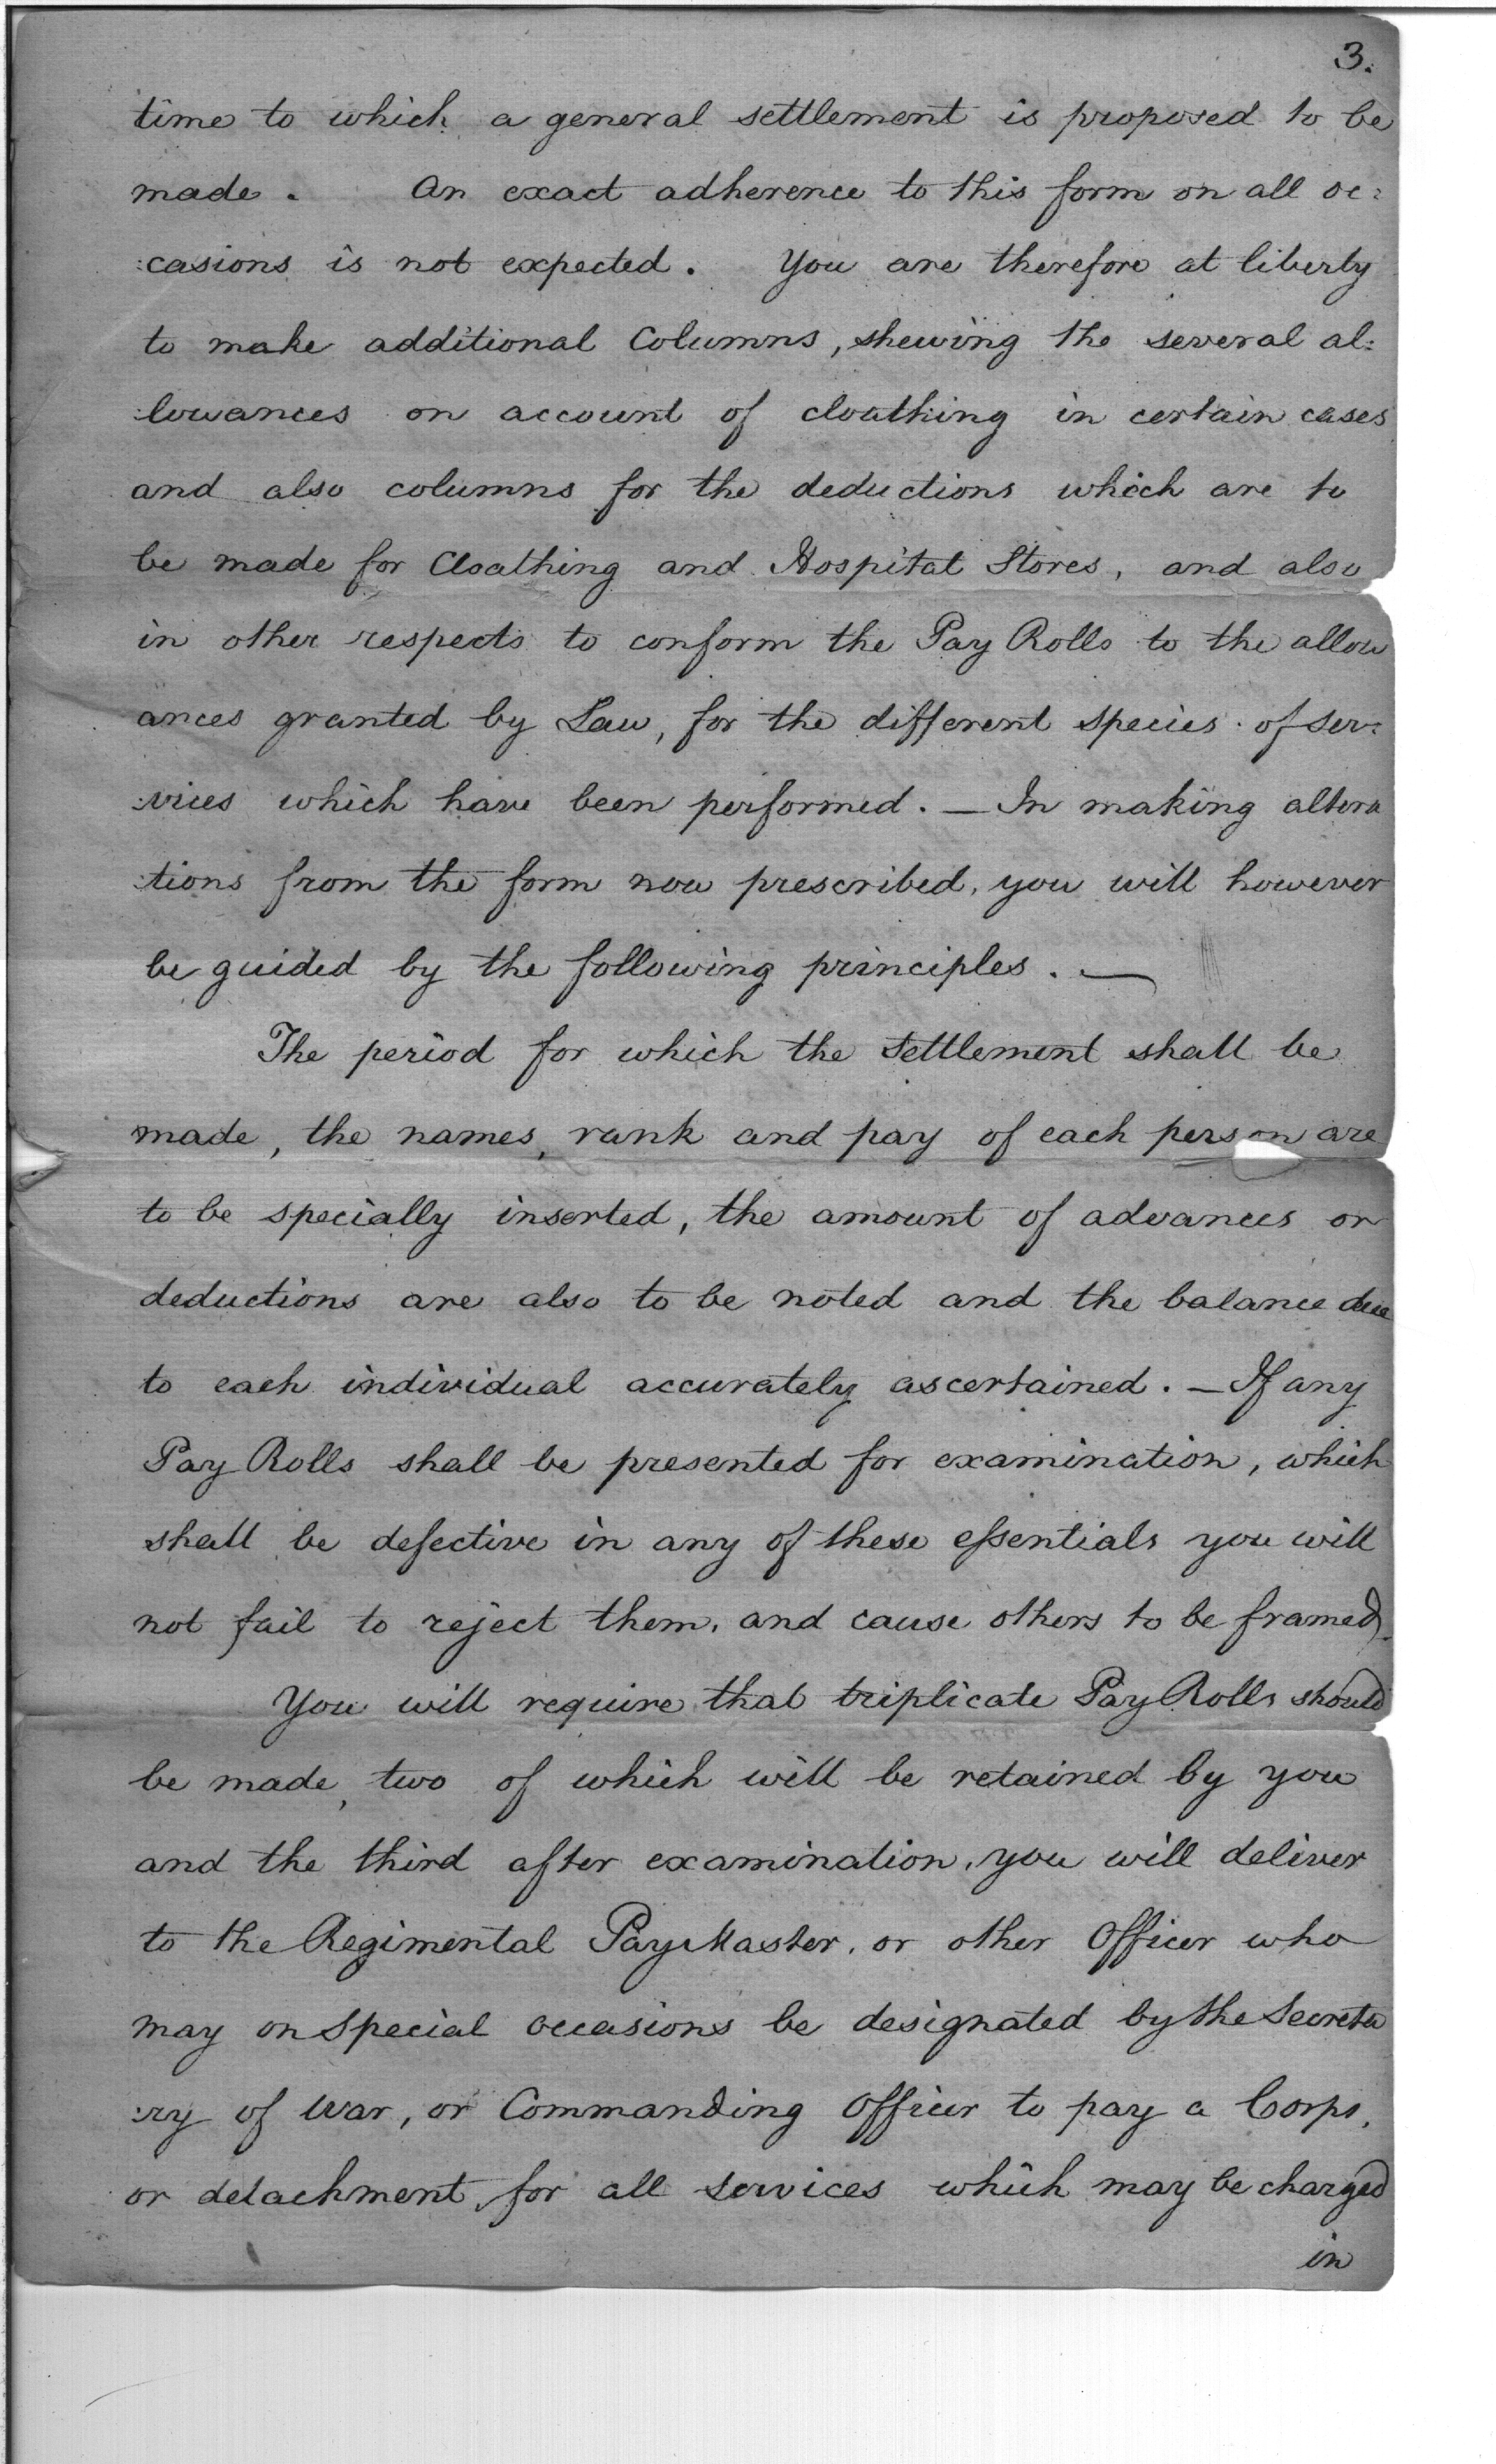 3.
time to which a general settlement is proposed to be
made. An exact adherence to this form on all oc:
:casions is not expected. You are therefore at liberty
to make additional Columns, shewing the several al:
:lowances on account of cloathing in certain cases
and also columns for the deductions which are to
be made for Cloathing and Hospital Stores, and also
in other respects to conform the Pay Rolls to the allow
ances granted by Law, for the different species of ser:
:vices which have been performed. — In making altera
:tions from the form now prescribed, you will however
be guided by the following principles. —
The period for which the Settlement shall be
made, the names, rank and pay of each person are
to be specially inserted, the amount of advances or
deductions are also to be noted and the balance due
to each individual accurately ascertained. — If any
Pay Rolls shall be presented for examination, which
shall be defective in any of these essentials you will
not fail to reject them, and cause others to be framed.
You will require that triplicate Pay Rolls should
be made, two of which will be retained by you
and the third after examination, you will deliver
to the Regimental PayMaster, or other Officer who
may on Special occasions be designated by the Secreta
:ry of War, or Commanding Officer to pay a Corps,
or detachment, for all services which may be charged
in